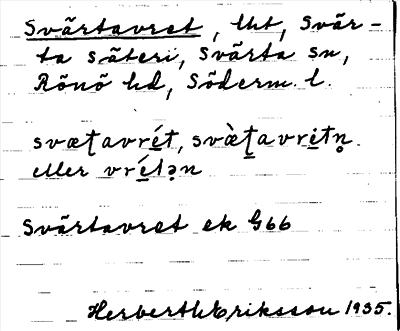 Svärtavret, lht, Svär-
ta säteri, Svärta sn,
Rönö hd, Söderm. l.
svæʈavrét, svæ̀ʈavretn̥
eller vrétən
Svärtavret ek G66
Herbert W Eriksson 1935.